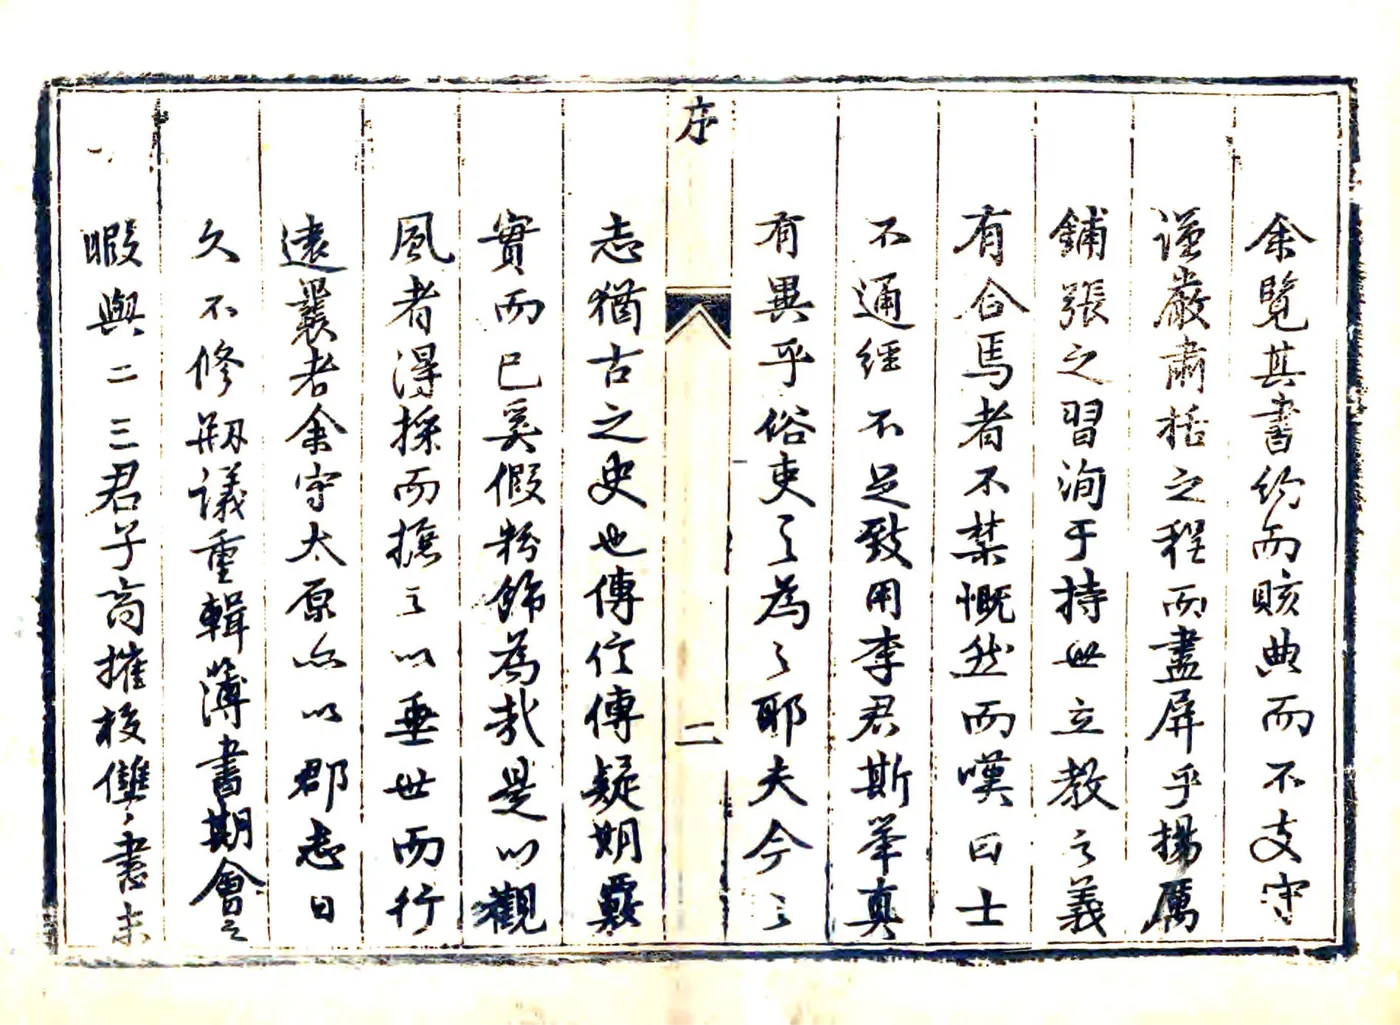 余覽其書約而賅典而不支守
謹嚴肅括之程而盡屏乎揚厲
鋪張之習洵于持世立教之義
有合焉者不禁慨然而嘆曰士
不通經不足致用李君斯舉真
有異乎俗吏之為之耶夫今之
序
二
志猶古之史也傳信傳疑期覈
實而已奚假粉飾為哉是以觀
風者得採而摭之以垂世而行
遠曩者余守太原亦以郡志日
久不修剏議重輯簿書期會之
暇與二三君子商搉校讎書未